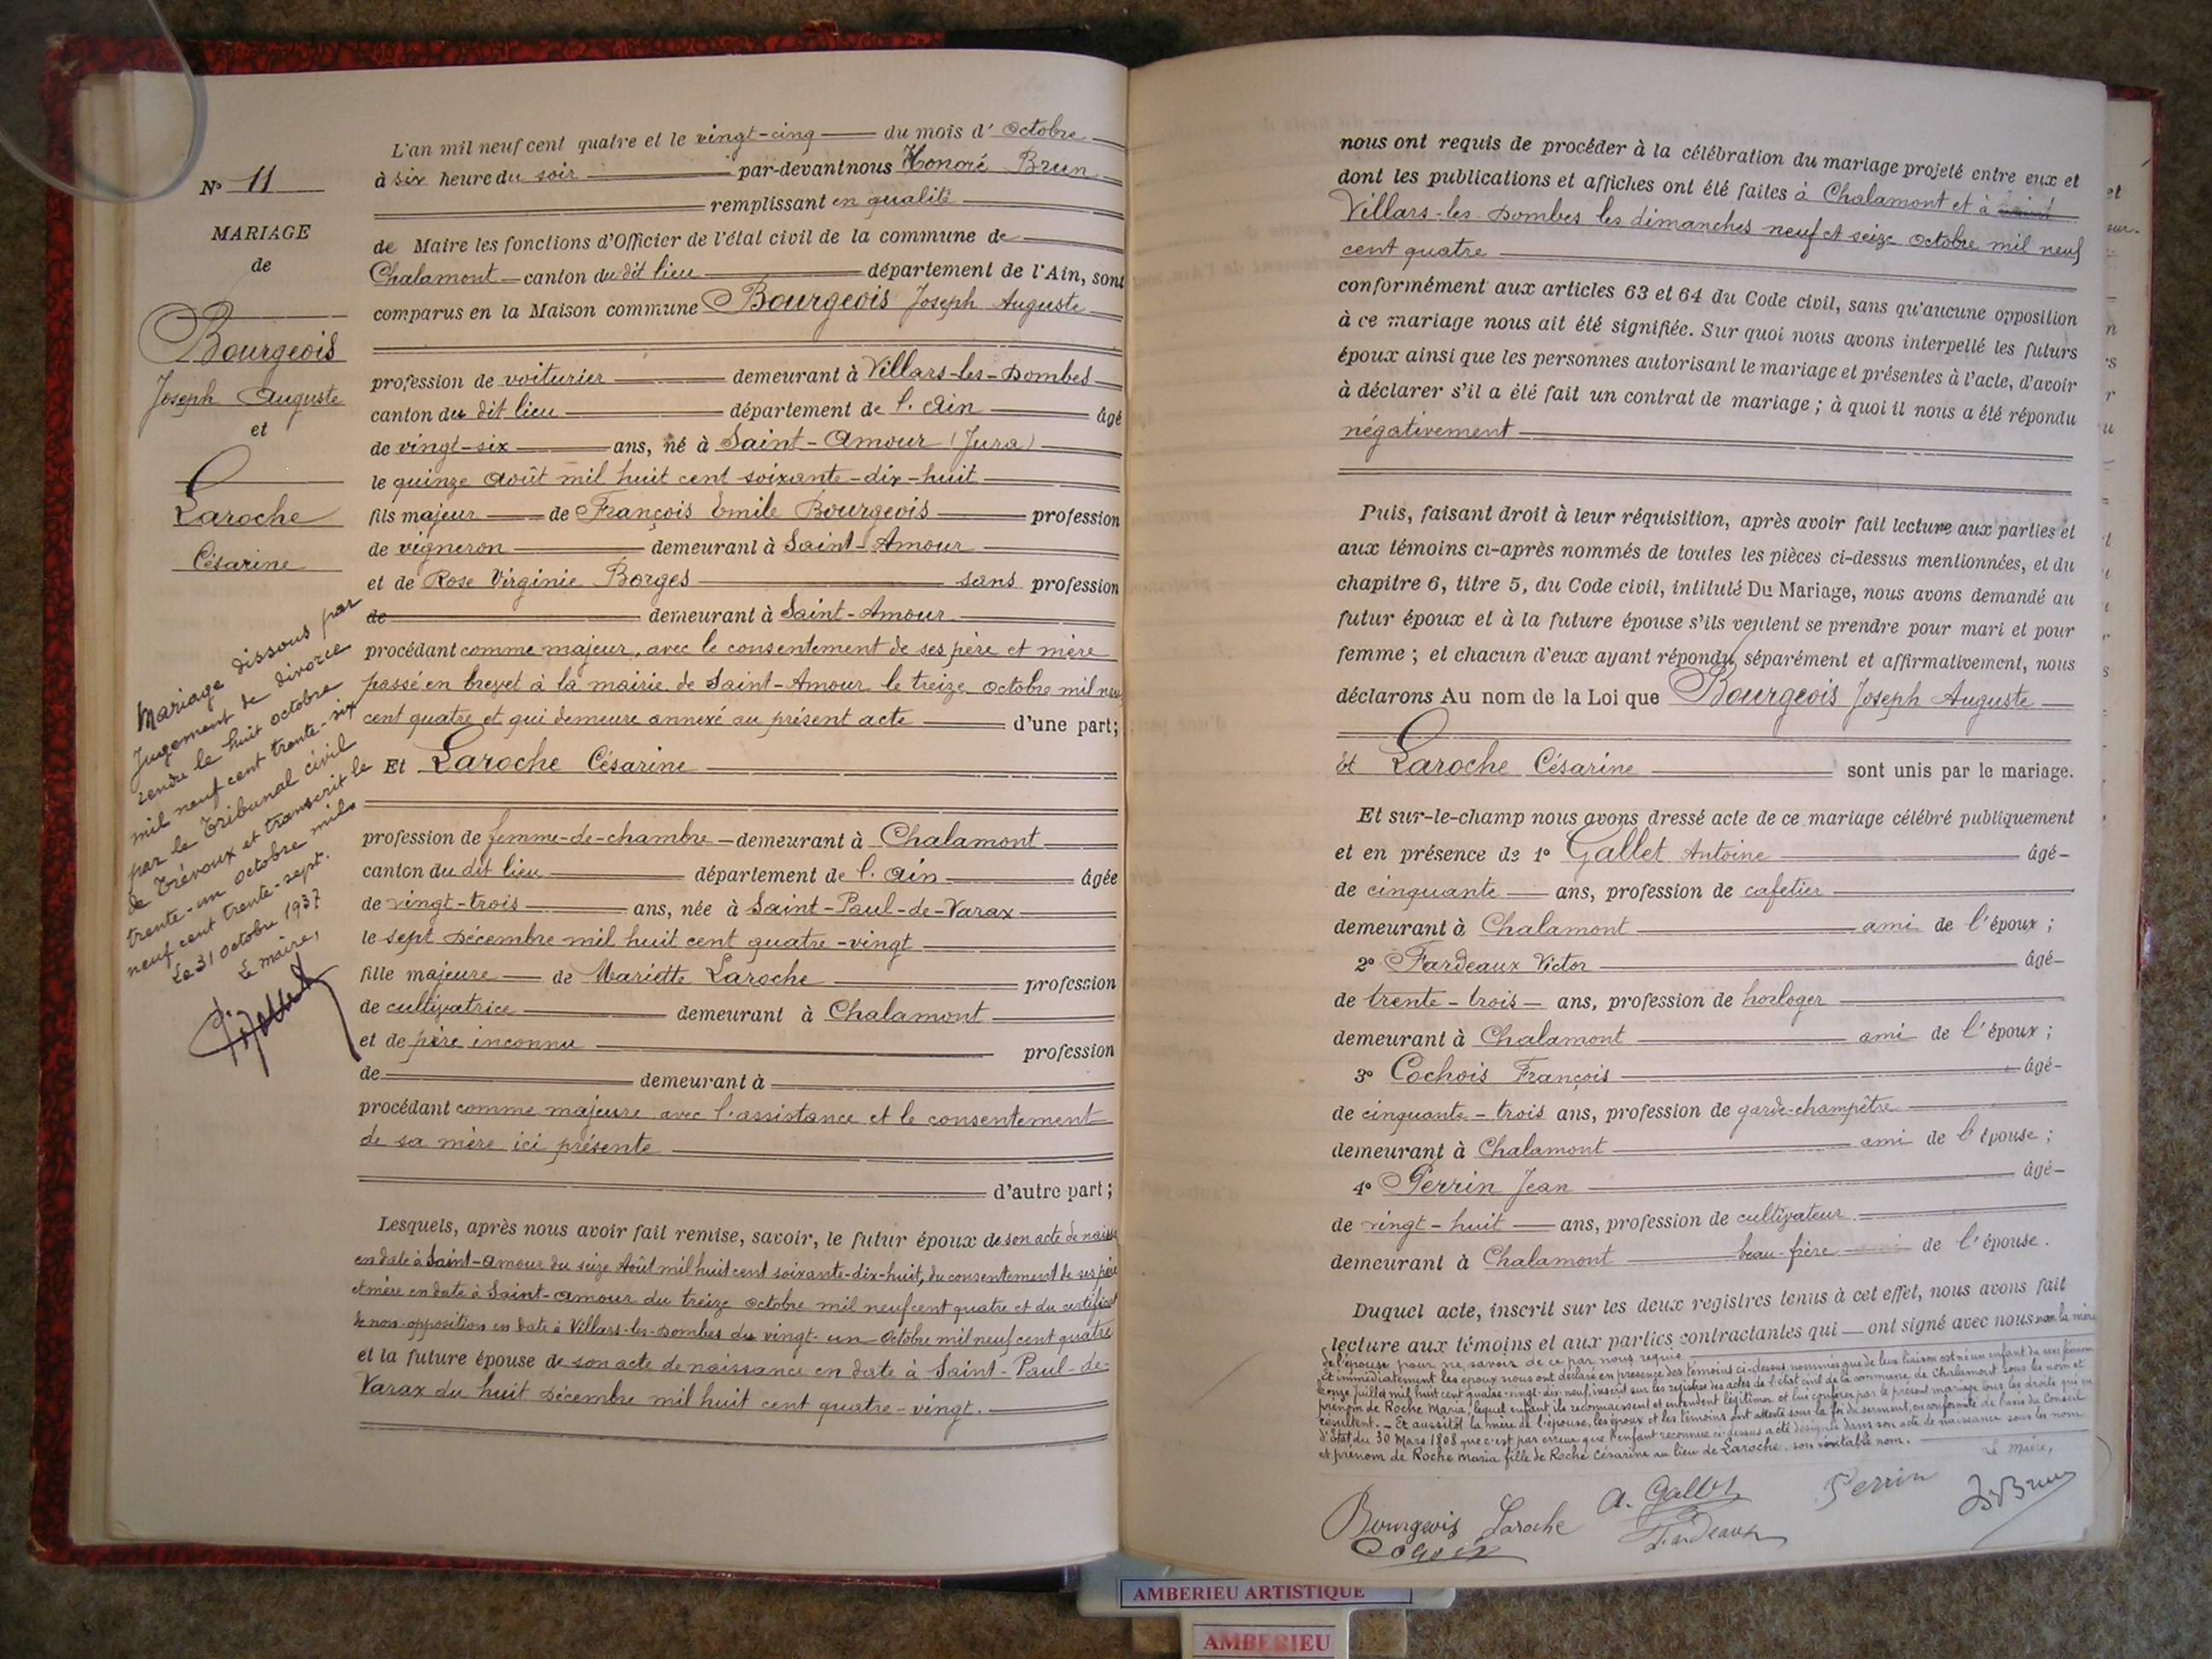 N° 11
MARIAGE
de
Bourgeois
Joseph Auguste
et
Laroche
Césarine
Mariage dissous par
Jugement de divorce
rendu le huit octobre
mil neuf cent trente-six
par le Tribunal civil
de Trévoux et transcrit le
trente-un octobre mil
neuf cent trente-sept.
Le 31 octobre 1937
Le maire,
L'an mil neuf cent quatre et le vingt-cinq du mois d'octobre
à six heure du soir par-devant nous Honoré Brun
remplissant en qualité
de Maire les fonctions d'Officier de l'état civil de la commune de
Chalamont canton du dit lieu département de l'Ain, sont
comparus en la Maison commune Bourgeois Joseph Auguste
profession de voiturier demeurant à Villars-les-Dombes
canton du dit lieu département de l'Ain âgé
de vingt-six ans, né à Saint-Amour (Jura)
le quinze Août mil huit cent soixante-dix-huit
fils majeur de François Emile Bourgeois profession
de vigneron demeurant à Saint-Amour
et de Rose Virginie Borges sans profession
de demeurant à Saint-Amour
procédant comme majeur, avec le consentement de ses père et mère
passé en brevet à la mairie de Saint-Amour le treize octobre mil neuf
cent quatre et qui demeure annexé au présent acte d'une part;
Et Laroche Césarine
profession de femme-de-chambre demeurant à Chalamont
canton du dit lieu département de l'Ain âgée
de vingt-trois ans, née à Saint-Paul-de-Varax
le sept Décembre mil huit cent quatre-vingt
fille majeure de Mariette Laroche profession
de cultivatrice demeurant à Chalamont
et de père inconnu profession
de demeurant à
procédant comme majeure avec l'assistance et le consentement
de sa mère ici présente
d'autre part;
Lesquels, après nous avoir fait remise, savoir, le futur époux de son acte de naiss
en date à Saint-Amour du seize Août mil huit cent soixante-dix-huit, du consentement de ses père
et mère en date à Saint-Amour du treize octobre mil neuf cent quatre et du certificat
de non-opposition en date à Villars-les-Dombes du vingt-un octobre mil neuf cent quatre
et la future épouse de son acte de naissance en date à Saint-Paul-de-
Varax du huit Décembre mil huit cent quatre-vingt.
nous ont requis de procéder à la célébration du mariage projeté entre eux et
dont les publications et affiches ont été faites à Chalamont et à
Villars-les-Dombes les dimanches neuf et seize octobre mil neuf
cent quatre
conformément aux articles 63 et 64 du Code civil, sans qu'aucune opposition
à ce mariage nous ait été signifiée. Sur quoi nous avons interpellé les futurs
époux ainsi que les personnes autorisant le mariage et présentes à l'acte, d'avoir
à déclarer s'il a été fait un contrat de mariage ; à quoi il nous a été répondu
négativement
Puis, faisant droit à leur réquisition, après avoir fait lecture aux parties et
aux témoins ci-après nommés de toutes les pièces ci-dessus mentionnées, et du
chapitre 6, titre 5, du Code civil, intitulé Du Mariage, nous avons demandé au
futur époux et à la future épouse s'ils veulent se prendre pour mari et pour
femme ; et chacun d'eux ayant répondu séparément et affirmativement, nous
déclarons Au nom de la Loi que Bourgeois Joseph Auguste
Et Laroche Césarine sont unis par le mariage.
Et sur-le-champ nous avons dressé acte de ce mariage célébré publiquement
et en présence de 1° Gallet Antoine âgé
de cinquante ans, profession de cafetier
demeurant à Chalamont ami de l'époux ;
2° Fardeaux Victor âgé
de trente-trois ans, profession de horloger
demeurant à Chalamont ami de l'époux ;
3° Cochois François âgé
de cinquante-trois ans, profession de garde-champêtre
demeurant à Chalamont ami de l'épouse ;
4° Perrin Jean âgé
de vingt-huit ans, profession de cultivateur
demeurant à Chalamont beau-frère de l'épouse.
Duquel acte, inscrit sur les deux registres tenus à cet effet, nous avons fait
lecture aux témoins et aux parties contractantes qui ont signé avec nous non la mère
de l'épouse pour ne savoir de ce par nous requis
Et immédiatement les époux nous ont déclaré en présence des témoins ci-dessus nommés que de leur liaison est né un enfant du sexe féminin
onze juillet mil huit cent quatre-vingt-dix-neuf, inscrit sur les registres des actes de l'état civil de la commune de Chalamont sous les nom et
prénom de Roche Maria, lequel enfant ils reconnaissent et entendent légitimer et lui conférer par le présent mariage tous les droits qui en
résultent. - Et aussitôt la mère de l'épouse, les époux et les témoins ont attesté sous la foi du serment, en conformité de l'avis du Conseil
d'Etat du 30 Mars 1808 que c'est par erreur que l'enfant reconnue ci-dessus a été désignée dans son acte de naissance sous les nom
et prénom de Roche Maria fille de Roche Césarine au lieu de Laroche son véritable nom.
Le maire,
Bourgeois Laroche A. Gallet Perrin
Fardeaux
AMBERIEU ARTISTIQUE
AMBERIEU